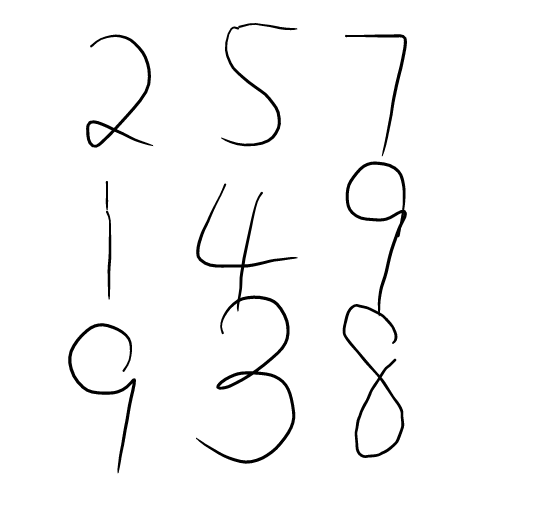 2 5 7
1 4 9
9 3 8